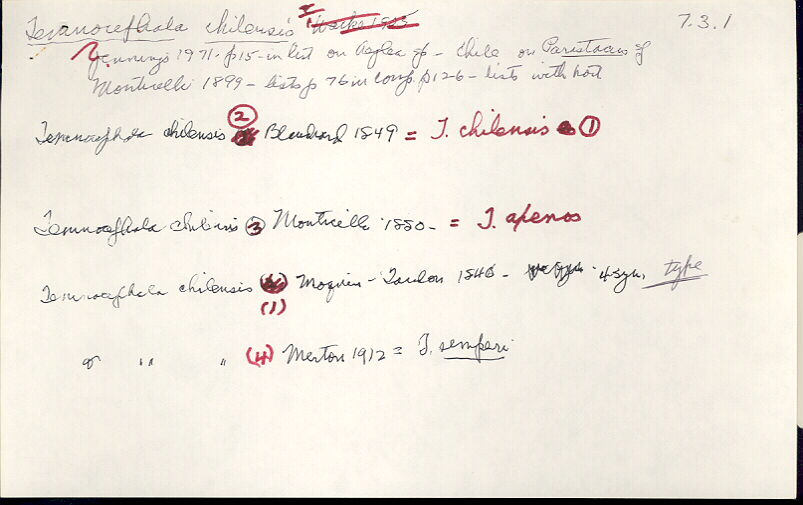 Temnocephala chilensis 7.3.1
Jennings 1971. p15 - in list on Aeglea sp - Chile on Parastacus sp
Monticelli 1899 - lists p 76 in comp. p126 - lists with host
Temnocephala chilensis ② Blanchard 1849 = T. chilensis ①
Temnocephala chilensis ③ Monticelli 1880 - = T. apenos
Temnocephala chilensis (1) Moquin-Tandon 1846 - 4 syn, type
" " (4) Merton 1912 = T. semperi